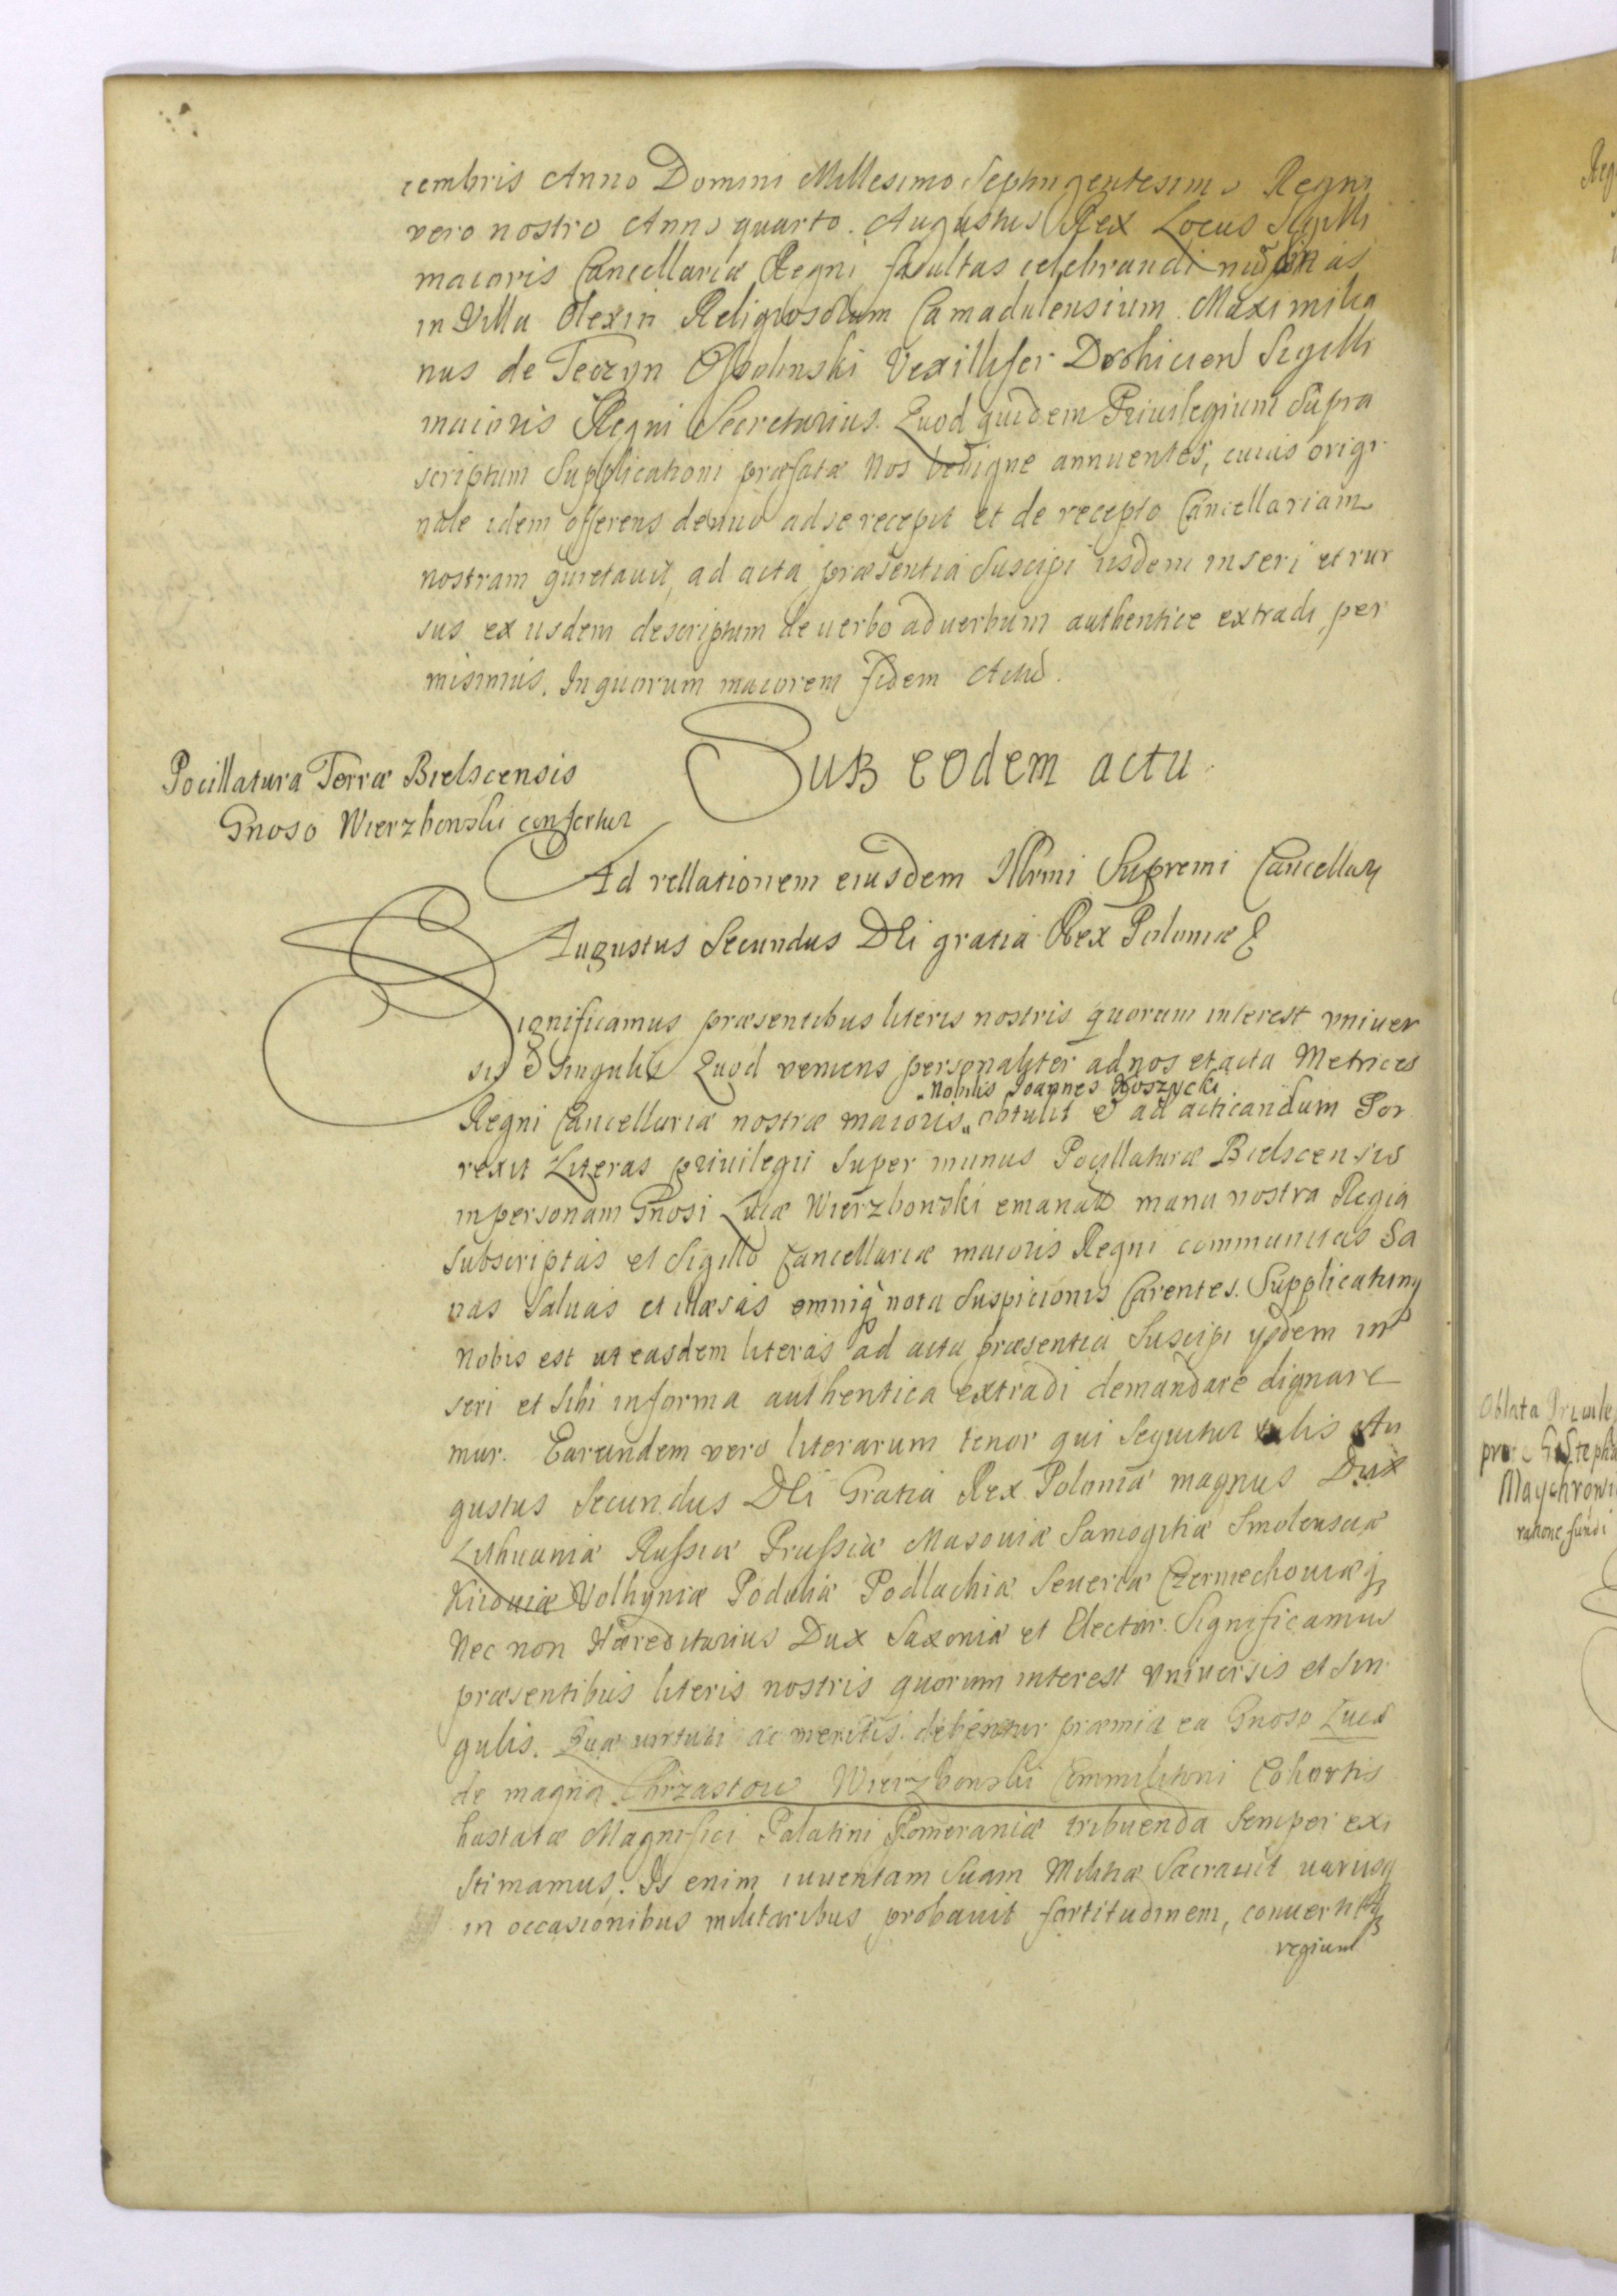 cembris Anno Domini Millesimo Septingentesimo Regni
vero nostro Anno quarto. Augustus Rex Locus Sigilli
maioris Cancellariæ Regni facultas celebrandi nundinas
in Villa Olexin Religiosorum Camadulensium. Maximilia
nus de Teczyn Ossolinski Vexillifer Drohicien Sigilli
maioris Regni Secretarius. Quod quidem Priuilegium Supra
scriptum Supplicationi præfatæ Nos benigne annuentes, cuius origi
nale idem offerens denuo ad se recepit et de recepto Cancellariam
nostram quietauit, ad acta præsentia Suscipi iisdem inseri et rur
sus ex iisdem descriptum de uerbo aduerbum authentice extradi, per
misimus. In quorum maiorem fidem Actu.
Sub eodem actu.
Pocillatura Terræ Bielscensis
Gnoso Wierzbowski confertur
Ad rellationem eiusdem Illrmi Supremi Cancellarij
Augustus Secundus DEi gratia Rex Poloniæ &
Significamus præsentibus literis nostris quorum interest vniuer
sis & Singulis Quod veniens personaliter ad nos et acta Metrices
„Nobilis Joannes Koszycki
Regni Cancellariæ nostræ maioris „ obtulit & ad acticandum Por
rexit Literas priuilegii Super munus Pocillaturæ Bielscensis
in personam Gnosi Lucæ Wierzbowski emanatas manu nostra Regia
Subscriptas et Sigillo Cancellariæ maioris Regni communitas Sa
nas Saluas et illæsas omniq nota Suspicionis Carentes. Supplicatumq
Nobis est ut easdem literas ad acta præsentia Suscipi ysdem in
seri et Sibi informa authentica extradi demandare dignare
mur. Earundem vero literarum tenor qui Sequitur talis Au
gustus Secundus DEi Gratia Rex Poloniæ magnus Dux
Lithuaniæ Russiæ Prussiæ Masouiæ Samogitiæ Smolensciæ
Kiiouiæ Volhyniæ Podoliæ Podlachiæ Seueriæ Czerniechouiæq
Nec non Hæreditarius Dux Saxoniæ et Elector. Significamus
præsentibus literis nostris quorum interest Vniuersis et Sin
gulis. Quæ uirtuti ac meritis debentur præmia ea Gnoso Lucæ
de magna Chrzastow Wierzbowski Commilitoni Cohortis
hastatæ Magnifici Palatini Pomeraniæ tribuenda Semper exi
stimamus. Is enim iuuentam Suam Militiæ Sacrauit uariisq
in occasionibus militaribus probauit fortitudinem,
regium
Oblata Priuile
Maychrowi
ratione fundi